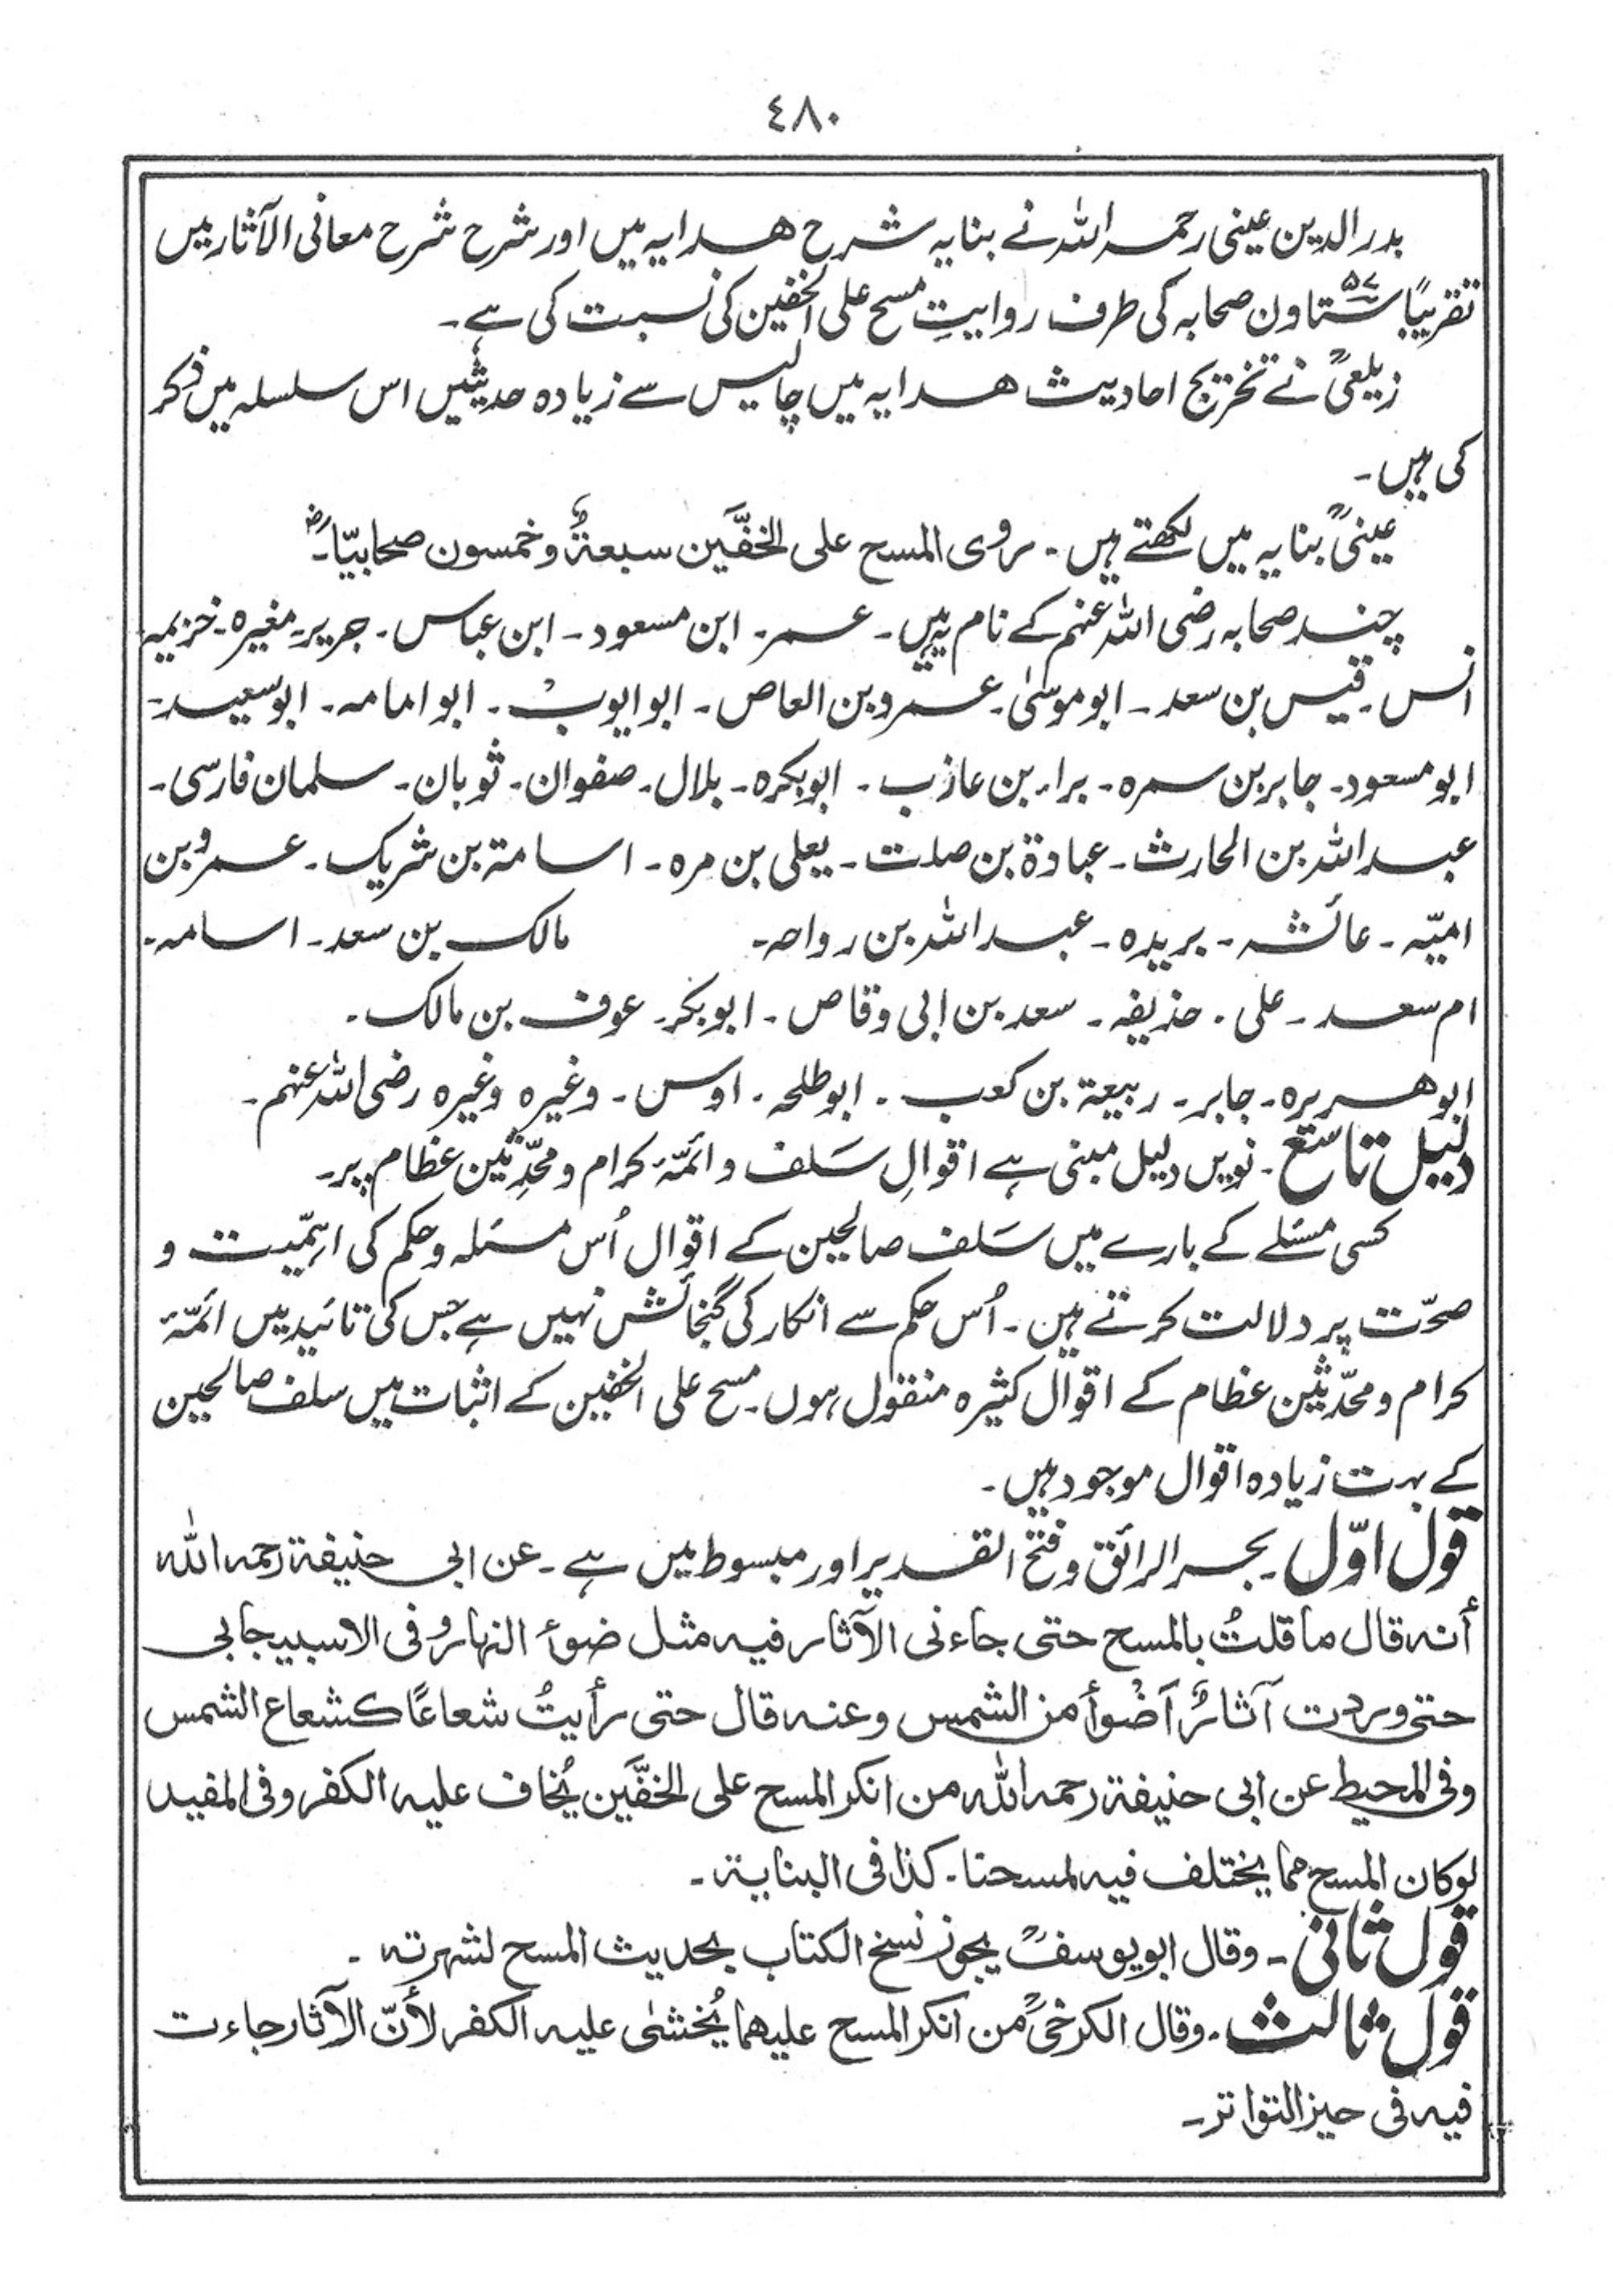 ٤٨٠
بدر الدین عینی رحمہ اللہ نے بنایہ شرح ھدایہ میں اور شرح شرح معانی الآثار میں
تقریبًا ستاون ۵۷ صحابہ کی طرف روایتِ مسح علی الخفین کی نسبت کی ہے۔
زیلعیؒ نے تخریج احادیث ھدایہ میں چالیس سے زیادہ حدیثیں اس سلسلہ میں ذکر
کی ہیں۔
عینیؒ بنایہ میں لکھتے ہیں۔ روی المسح علی الخفَّین سبعةٌ وخمسون صحابیّاً۔
چند صحابہ رضی اللہ عنہم کے نام یہ ہیں۔ عمر۔ ابن مسعود۔ ابن عباس۔ جریر۔ مغیرہ۔ خزیمہ
انس۔ قیس بن سعد۔ ابوموسیٰ۔ عمرو بن العاص۔ ابوایوب۔ ابوامامہ۔ ابوسعید۔
ابومسعود۔ جابر بن سمرہ۔ براء بن عازب۔ ابوبکرہ۔ بلال۔ صفوان۔ ثوبان۔ سلمان فارسی۔
عبداللہ بن الحارث۔ عبادة بن صلت۔ یعلی بن مرہ۔ اسامة بن شریک۔ عمرو بن
امیّہ۔ عائشہ۔ بریدہ۔ عبداللہ بن رواحہ۔ مالک بن سعد۔ اسامہ۔
ام سعد۔ علی۔ حذیفہ۔ سعد بن ابی وقاص۔ ابوبکر۔ عوف بن مالک۔
ابوھریرہ۔ جابر۔ ربیعة بن کعب۔ ابوطلحہ۔ اوس۔ وغیرہ وغیرہ رضی اللہ عنہم۔
دلیل تاسع۔ نویں دلیل مبنی ہے اقوالِ سَلف و ائمّۂ کرام و محدِّثین عظام پر۔
کسی مسئلے کے بارے میں سَلف صالحین کے اقوال اُس مسئلہ و حکم کی اہمّیت و
صحّت پر دلالت کرتے ہیں۔ اُس حکم سے انکار کی گنجائش نہیں ہے جس کی تائید میں ائمّۂ
کرام و محدّثین عظام کے اقوال کثیرہ منقول ہوں۔ مسح علی الخفین کے اثبات میں سلف صالحین
کے بہت زیادہ اقوال موجود ہیں۔
قول اوّل۔ بحر الرائق و فتح القدیر اور مبسوط میں ہے۔ عن ابی حنیفة رحمہ اللہ
أنہ قال ما قلتُ بالمسح حتی جاءنی الآثار فیہ مثل ضوء النہار و فی الاسبیجابی
حتی وردت آثارٌ اَضْوأ من الشمس وعنہ قال حتی رأیتُ شعاعًا کشعاع الشمس
وفی المحیط عن ابی حنیفة رحمہ اللہ من انکر المسح علی الخفَّین یُخاف علیہ الکفر وفی المفید
لوکان المسح مما یختلف فیہ لمسحنا۔ کذا فی البنایة۔
قول ثانی۔ وقال ابویوسفؒ یجوز نسخ الکتاب بحدیث المسح لشہرتہ۔
قول ثالث۔ وقال الکرخیؒ من انکر المسح علیھما یُخشیٰ علیہ الکفر لأنّ الآثار جاءت
فیہ فی حیز التواتر۔